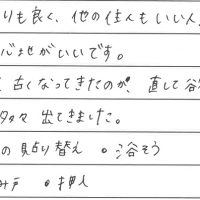 りも良く、他の住人もいい人
心地がいいです。
古くなってきたのが、直して
多々出てきました。
の貼り替え ○浴そう
み戸 ○押入